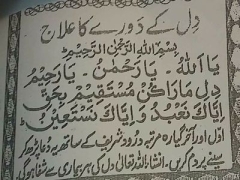 دِل کے دَورے کا علاج
بِسْمِ اللهِ الرَّحْمٰنِ الرَّحِيْمِ
يَا اَللهُ - يَا رَحْمٰنُ - يَا رَحِيْمُ
دِلِ مَا رَا كُنْ مُسْتَقِيْم بِحَقِّ
اِيَّاكَ نَعْبُدُ وَ اِيَّاكَ نَسْتَعِيْنُ
اوّل اور آخر گیارہ مرتبہ درود شریف کے ساتھ یہ دعا پڑھ کر
سینے پر دم کریں۔ انشاء اللہ تعالیٰ دل کی ہر بیماری سے شفا ہو گی